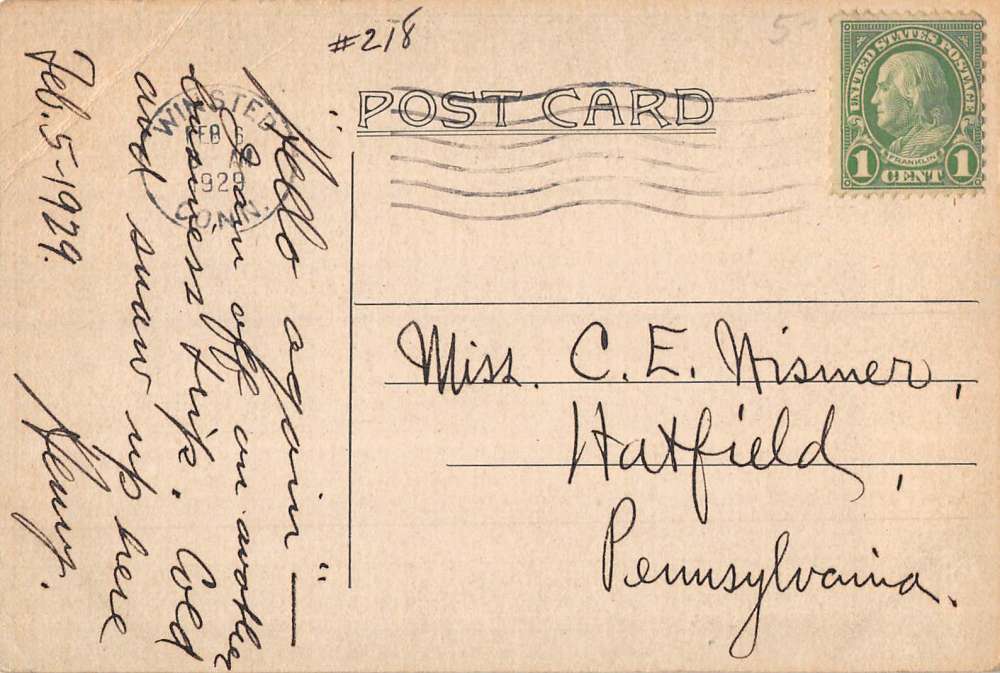 #218
POST CARD
UNITED STATES POSTAGE
FRANKLIN
1 CENT 1
WINSTED
FEB 6
M
1929
CONN.
"Hello again"—
I am off on another
business trip. Cold
and snaw up here
Feb. 5-1929. Henry.
Miss. C. E. Nismer,
Hatfield,
Pennsylvania.
5